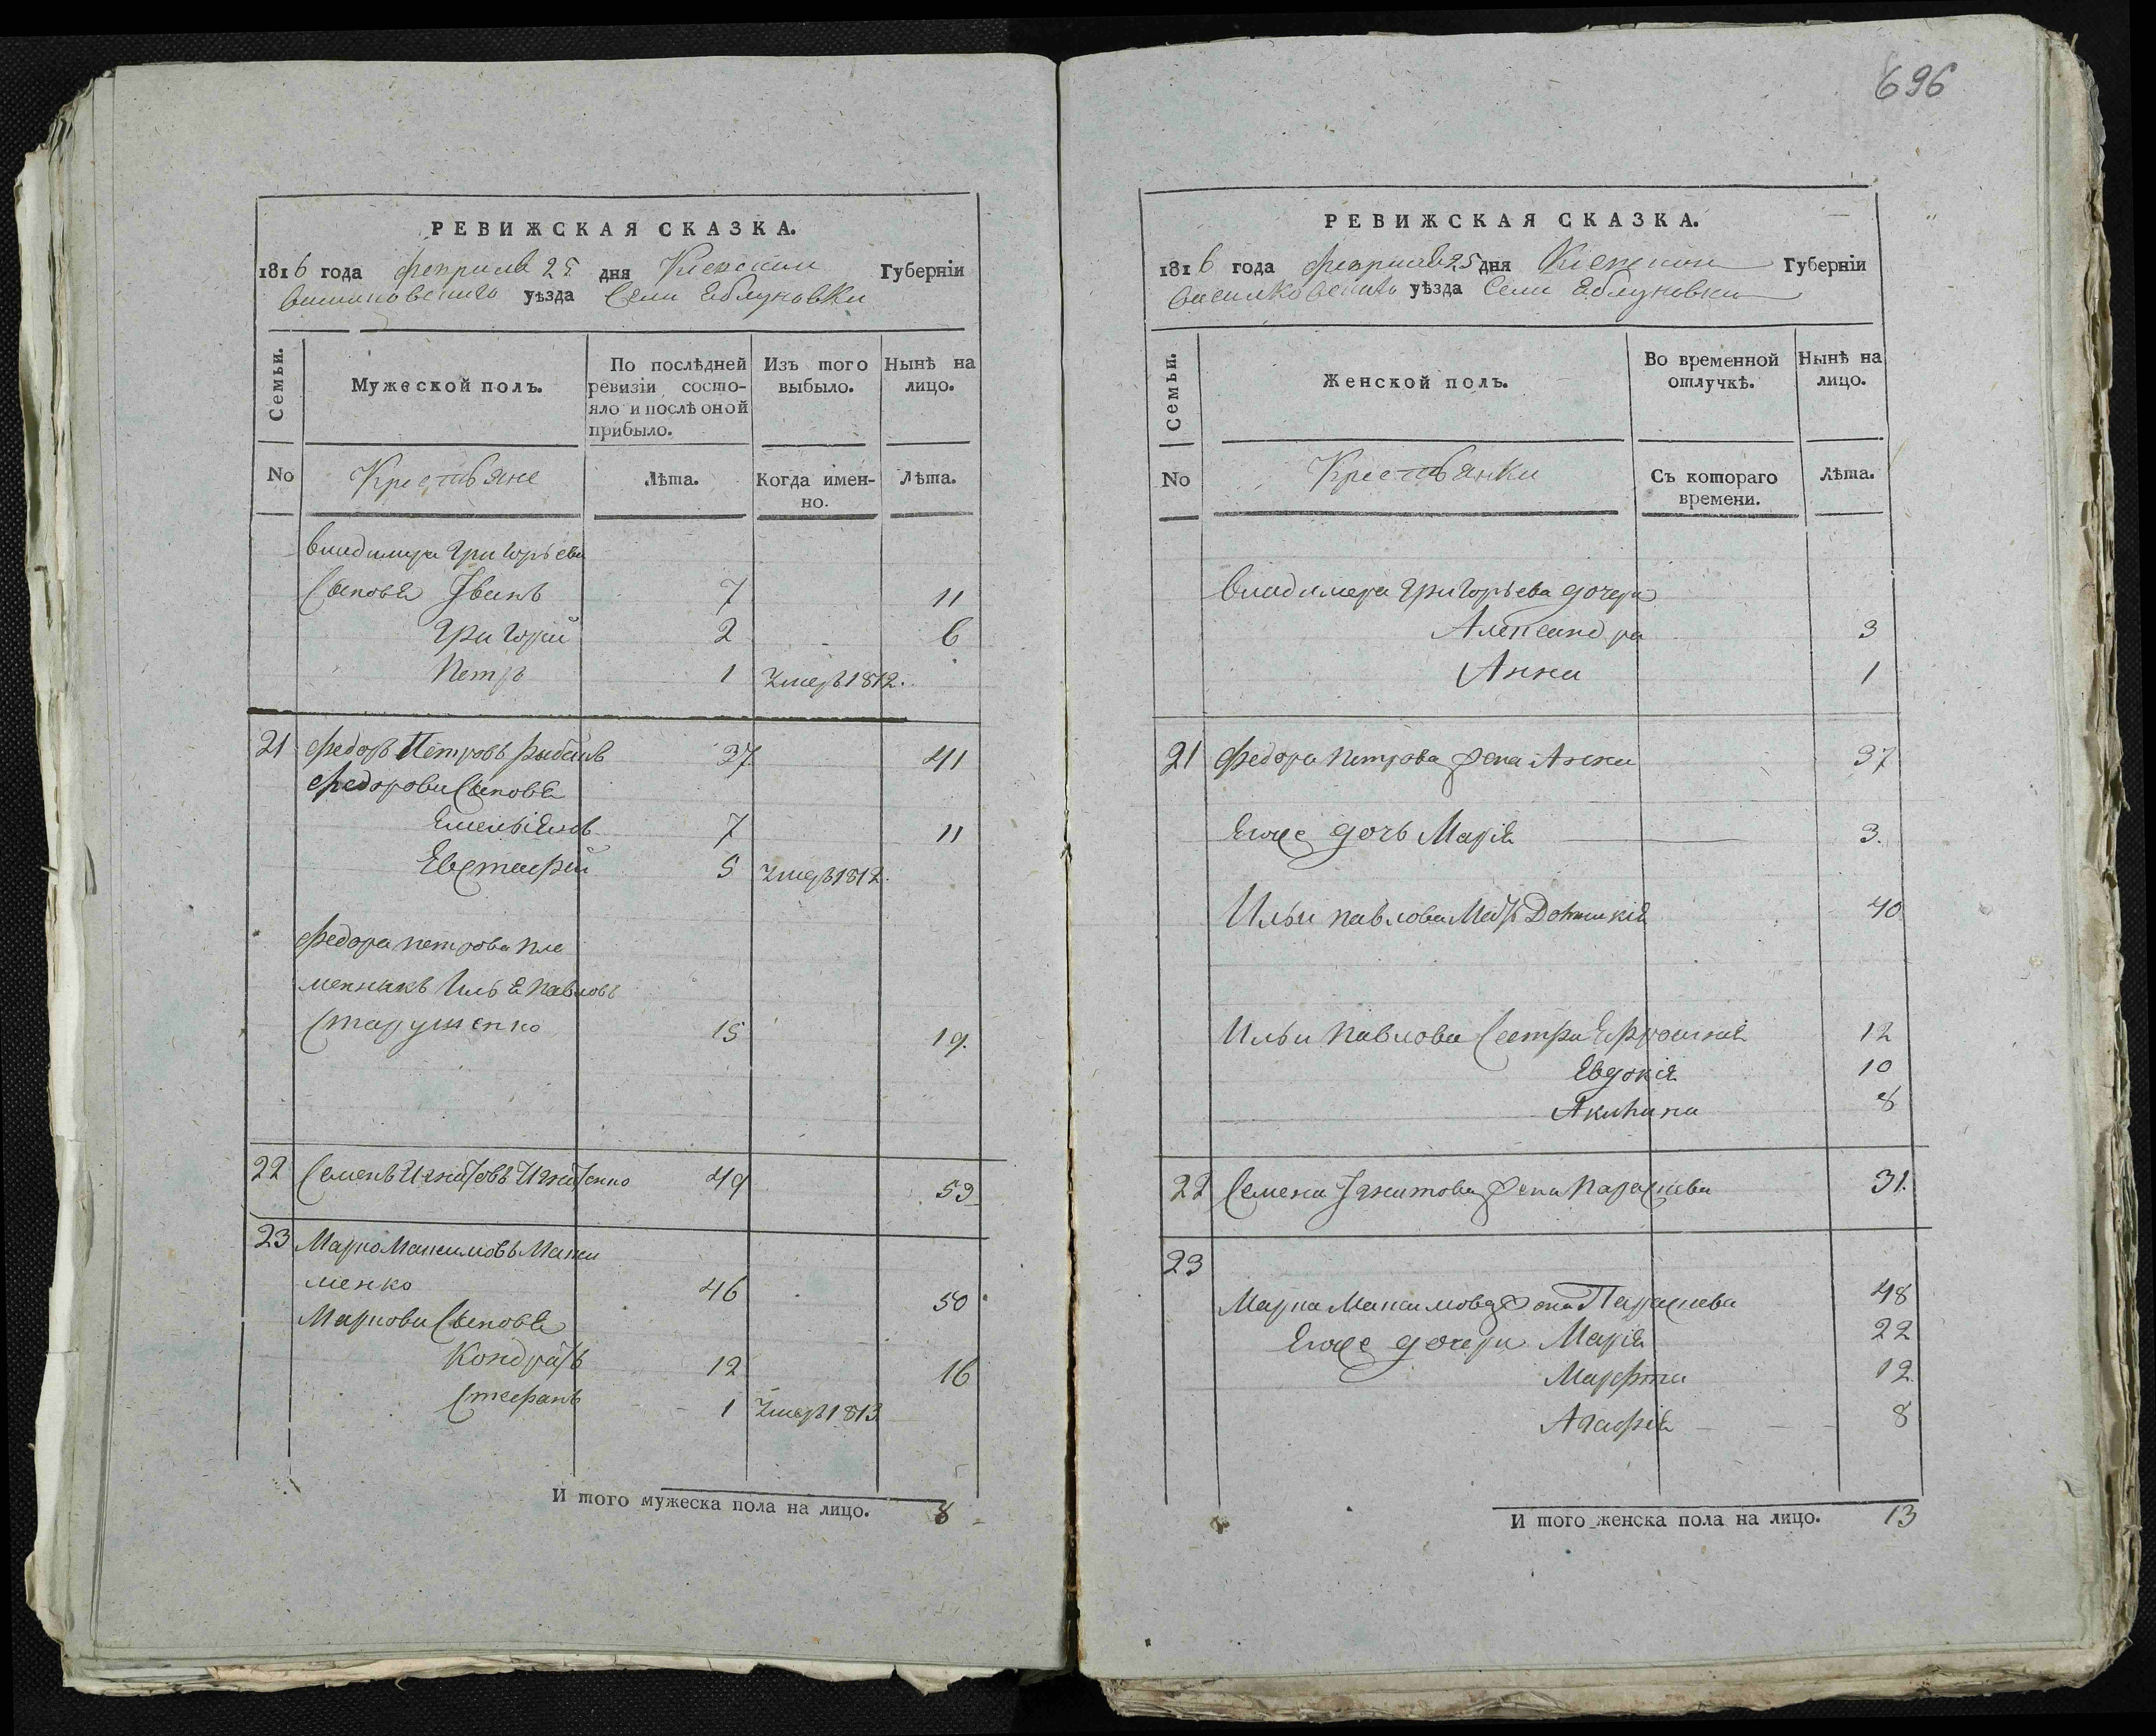 РЕВИЖСКАЯ СКАЗКА.
1816 года февраля 25 дня Киевской Губернїи
васильковского уѣзда Села Яблуновки
Семьи.
Мужеской полъ.
По послѣдней ревизїи состояло и послѣ оной прибыло.
Изъ того выбыло.
Нынѣ на лицо.
No Крестьяне Лѣта. Когда именно. Лѣта.
владимира Григорьева
Сыновя Іванъ 7 11
Григорий 2 6
Петръ 1 Умеръ 1812.
21 Федоръ Петровъ 37 41
Федорови Сыновя
Емельянъ 7 11
Евстафий 5 Умеръ 1812.
Федора петрова пле
менникъ Илья павловъ
15 19.
22 Семенъ Игнатовъ Игнатенко 49 53
23 Марко Максимовъ Макси
менко 46 50
Маркови Сыновя
Кондратъ 12 16
Стефанъ 1 Умеръ 1813
И того мужеска пола на лицо. 8
696
РЕВИЖСКАЯ СКАЗКА.
1816 года февраля 25 дня Киевской Губернїи
васильковского уѣзда Села Яблуновки
Семьи.
Женской полъ.
Во временной отлучкѣ.
Нынѣ на лицо.
No Крестьянки Съ котораго времени. Лѣта.
владимера Григорьева дочери
Александра 3
Анна 1
21 Федора петрова жена Анна 37
Егоже дочь Марія 3.
Ильи павлова Мать 40
Ильи павлова Сестри Ефросинія 12
Евдокія 10
Акилина 8
22 Семена Ігнатова жена Параскева 31.
23
Марка Максимова жена Параскева 48
Егоже дочери Марія 22
Марфта 12
Агафія 8
И того женска пола на лицо. 13